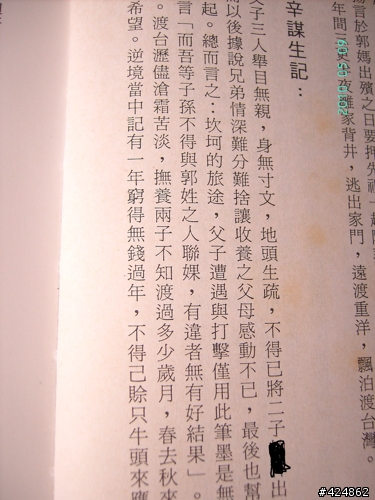 言於郭媽出殯之日要押先
年間三更半夜離家背井，逃出家門，遠渡重洋，飄泊渡台灣。
辛謀生記：
父子三人舉目無親，身無寸文，地頭生疏，不得已將二子
出
而以後據說兄弟情深難分難捨讓收養之父母感動不已，最後也幫
起。總而言之：坎坷的旅途，父子遭遇與打擊僅用此筆墨是無
言「而吾等子孫不得與郭姓之人聯婐，有違者無有好結果」。
。渡台瀝儘滄霜苦淡，撫養兩子不知渡過多少歲月，春去秋來
希望。逆境當中記有一年窮得無錢過年，不得己賒只牛頭來應
#424862